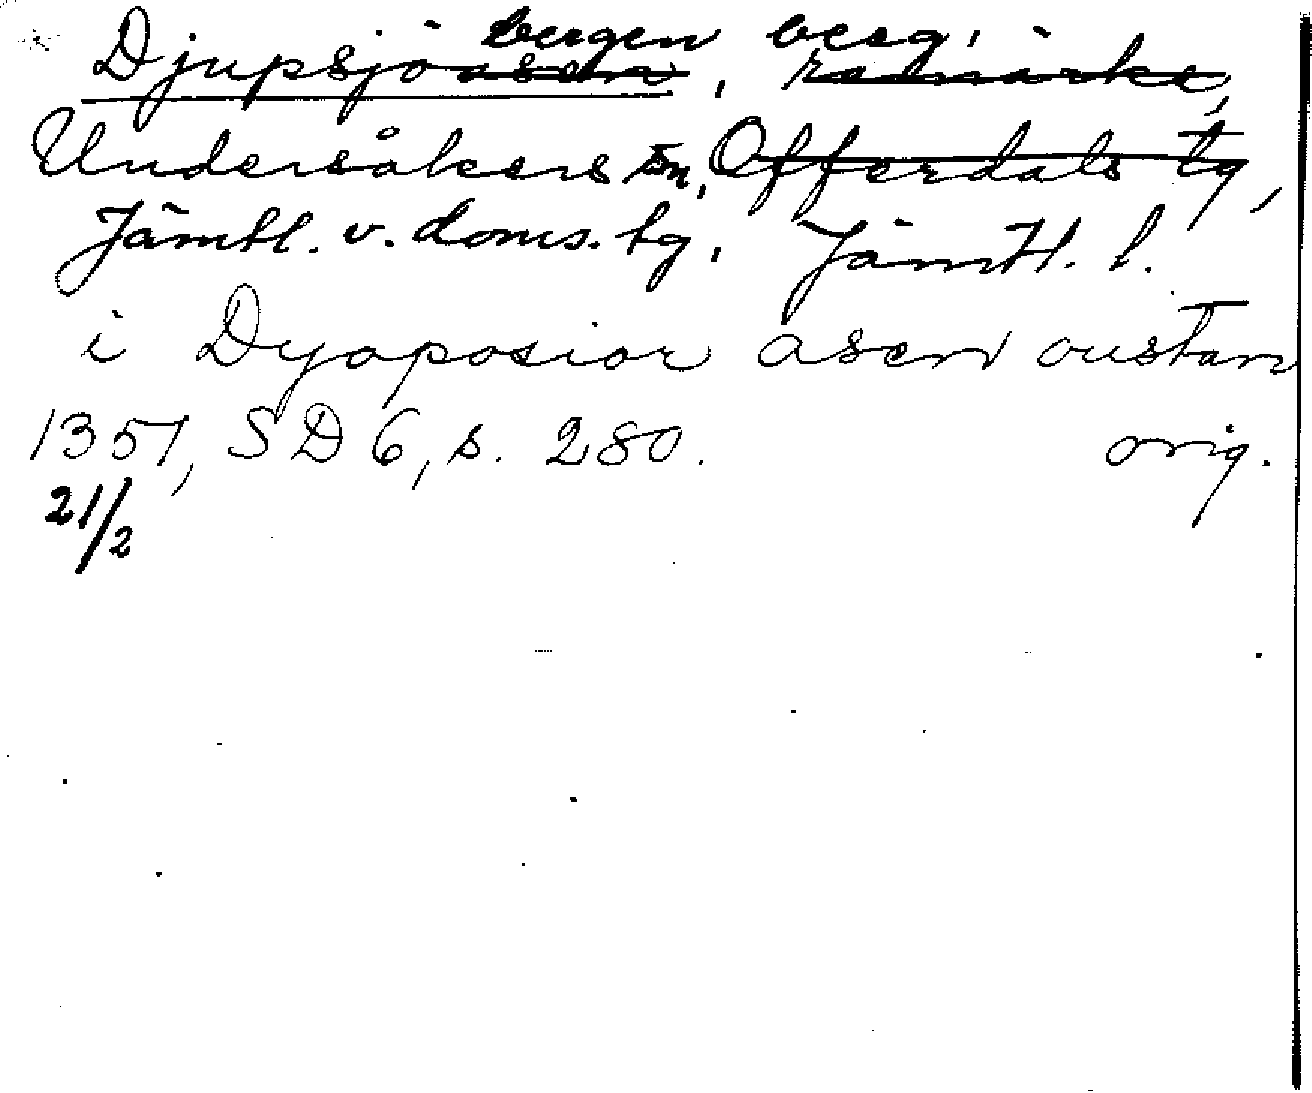 bergen berg,
Djupsjöåsen, råmärke,
Undersåkers sn, Offerdals tg,
Jämtl. v. doms. tg, Jämtl. l.
i Dyoposior asen oustan
1357, SD 6, s. 280. orig.
21/2